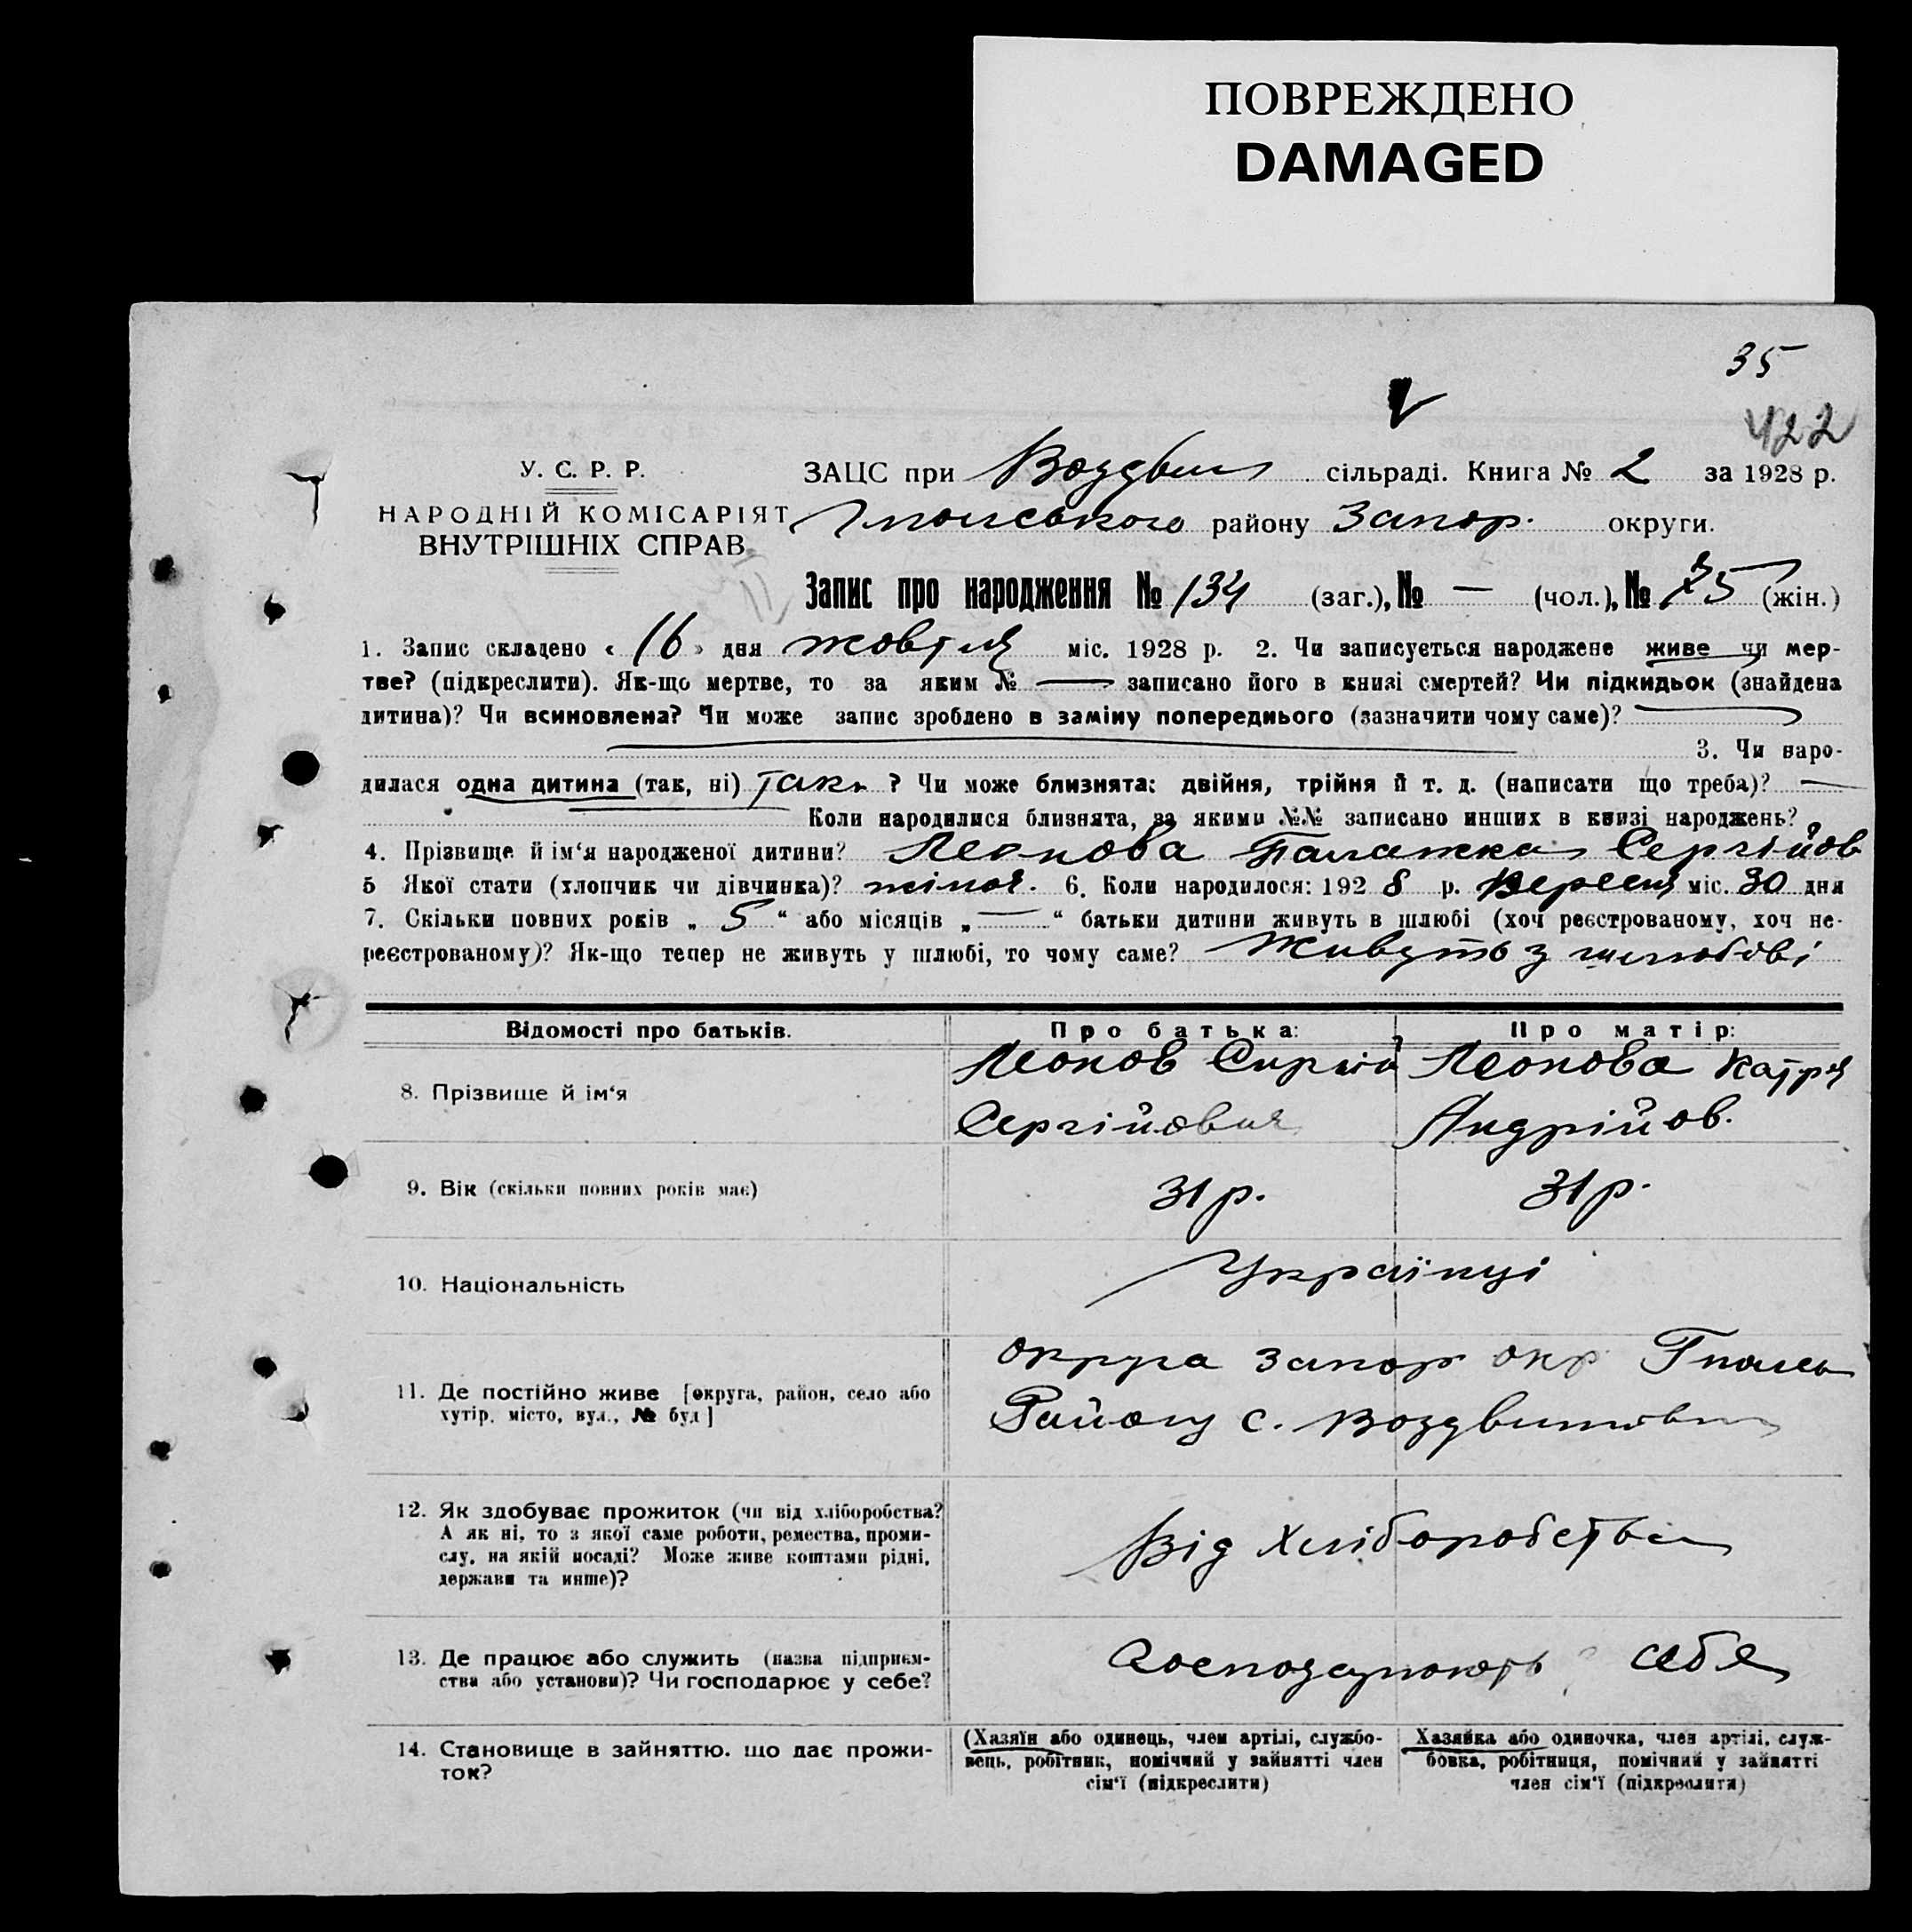 ПОВРЕЖДЕНО
DAMAGED
35
422
У. С. Р. Р.
НАРОДНІЙ КОМІСАРІЯТ
ВНУТРІШНІХ СПРАВ
ЗАЦС при Воздвиж сільраді. Книга № 2 за 1928 р.
району Запор. округи.
Запис про народження № 134 (заг.), № — (чол.), № 75 (жін.)
1. Запис складено « 16 » дня жовтня міс. 1928 р. 2. Чи записується народжене живе чи мер-
тве? (підкреслити). Як-що мертве, то за яким № — записано його в книзі смертей? Чи підкидьок (знайдена
дитина)? Чи всиновлена? Чи може запис зроблено в заміну попереднього (зазначити чому саме)? —
3. Чи наро-
дилася одна дитина (так, ні) так ? Чи може близнята: двійня, трійня й т. д. (написати що треба)? —
Коли народилися близнята, за якими №№ записано инших в книзі народжень?
4. Прізвище й ім'я народженої дитини? Леонова Палажка Сергійов
5 Якої стати (хлопчик чи дівчинка)? жіноч. 6. Коли народилося: 1928 р. Вересня міс. 30 дня
7. Скільки повних років „ 5 “ або місяців „ — “ батьки дитини живуть в шлюбі (хоч реєстрованому, хоч не-
реєстрованому)? Як-що тепер не живуть у шлюбі, то чому саме? Живуть у шлюбові
Відомості про батьків. Про батька: Про матір:
8. Прізвище й ім'я
Леонов Сиргій Леонова Катря
Сергійович Андрійов.
9. Вік (скільки повних років має) 31 р. 31 р.
10. Національність Українці
11. Де постійно живе [округа, район, село або
хутір, місто, вул., № буд]
округа Запор окр
Району с. Воздвижівки
12. Як здобуває прожиток (чи від хліборобства?
А як ні, то з якої саме роботи, ремества, проми-
слу, на якій посаді? Може живе коштами рідні,
держави та инше)?
Від Хліборобства
13. Де працює або служить (назва підприєм-
ства або установи)? Чи господарює у себе?
Господарюють себе
14. Становище в зайняттю. що дає прожи-
ток?
(Хазяїн або одинець, член артілі, службо-
вець, робітник, помічний у зайнятті член
сім'ї (підкреслити)
Хазяйка або одиночка, член артілі, служ-
бовка, робітниця, помічний у зайнятті
член сім'ї (підкреслити)